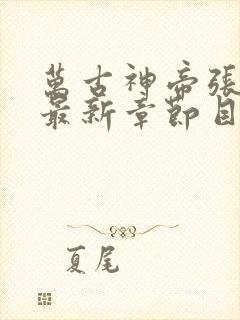 萬古神帝張
最新章節目
夏尾